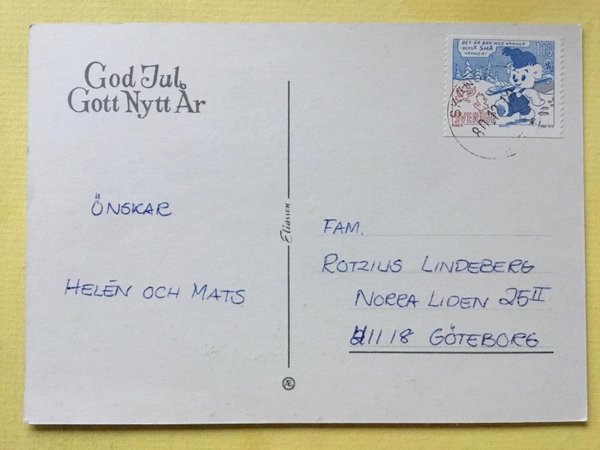 God Jul
Gott Nytt År
ÖNSKAR
HELÉN OCH MATS
Eliasson
Æ
DET ÄR BRA MED VÄNNER
OCKSÅ SMÅ
VÄNNER!
1.15
SVERIGE
FAM.
ROTZIUS LINDEBERG
NORRA LIDEN 25 II
411 18 GÖTEBORG